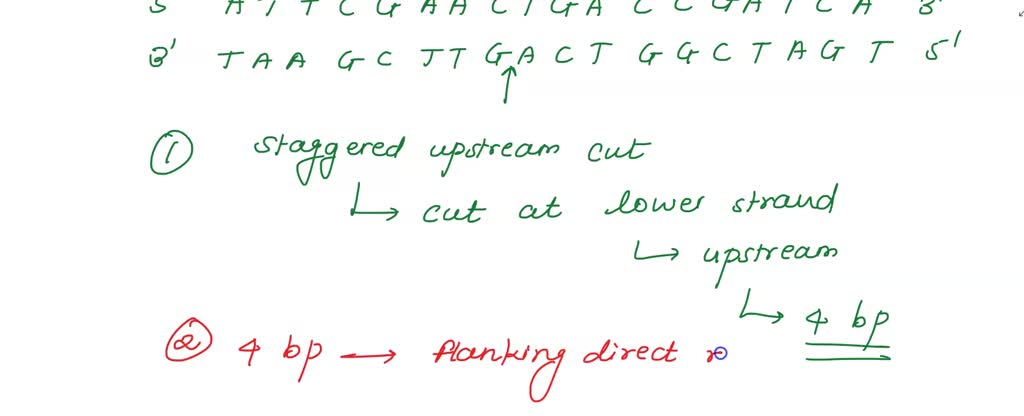 5' A T T C G A A C T G A C C G A T C A 3'
3' T A A G C T T G A C T G G C T A G T 5'
① staggered upstream cut
↳ cut at lower strand
↳ upstream
↳ 4 bp
② 4 bp → flanking direct